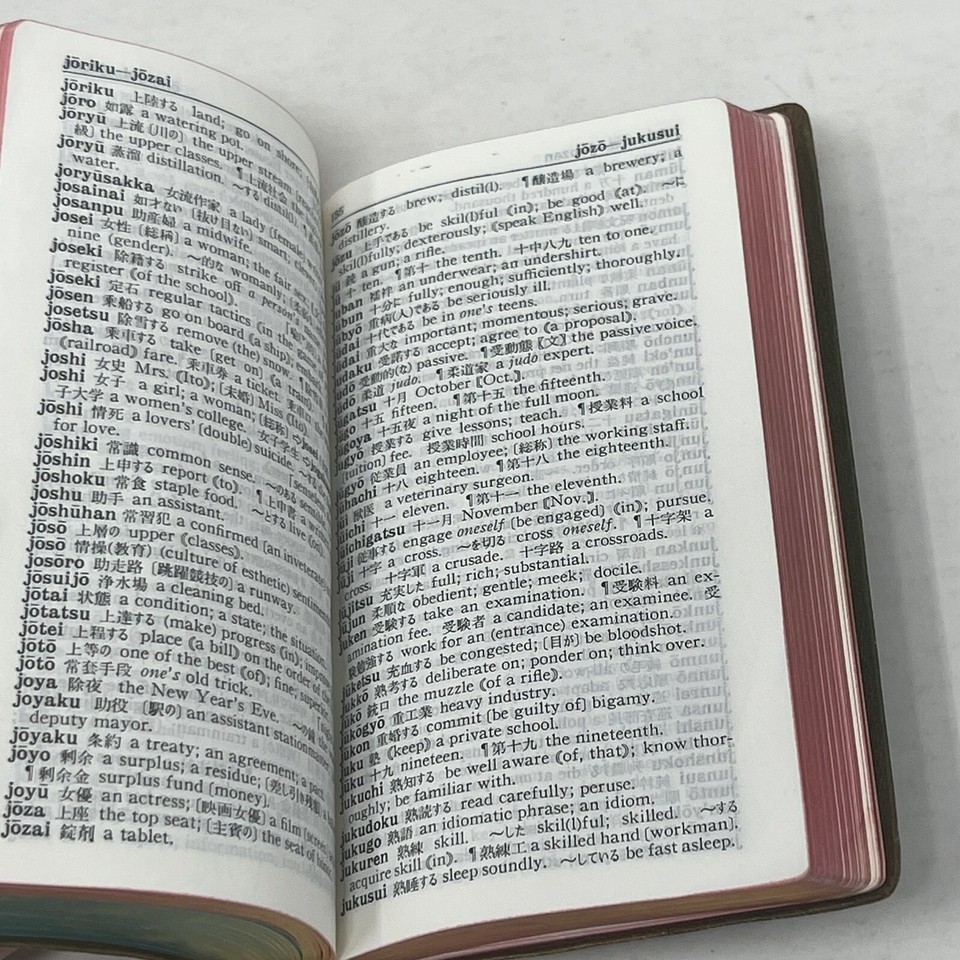 jōriku—jōzai
jōriku 上陸する land; go on shore
jōro 如露 a watering pot.
jōryū 上流 〔川の〕 the upper stream
級〕 the upper classes. ¶上流社会
jōryū 蒸溜 distillation. 〜する distil
water.
joryūsakka 女流作家 a lady (female)
josainai 如才ない 〔抜け目ない〕 smart;
josanpu 助産婦 a midwife.
josei 女性 〔総称〕 a woman; the fair sex;
nine (gender). 〜的な womanly;
joseki 除籍する strike off a person's
register (of the school).
jōseki 定石 regular tactics (in the game
jōsen 乗船する go on board (a ship);
josetsu 除雪する remove (the) snow.
jōsha 乗車する take [get on] (a tram)
(railroad) fare. 乗車券 a ticket.
joshi 女史 Mrs. (Ito); 〔未婚〕 Miss (Ito).
joshi 女子 a girl; a woman; 〔総称〕
子大学 a women's college. 女子学生
jōshi 情死 a lovers' (double) suicide.
for love.
jōshiki 常識 common sense. 〜のある
jōshin 上申する report (to). ¶上申書
jōshoku 常食 staple food. 〜とする live (on).
joshu 助手 an assistant.
jōshūhan 常習犯 a confirmed [an inveterate]
jōsō 上層の upper (classes).
jōsō 情操(教育) (culture of esthetic) sentiment
josōro 助走路 〔跳躍競技の〕 a runway.
jōsuijō 浄水場 a cleaning bed.
jōtai 状態 a condition; a state; the situation.
jōtatsu 上達する (make) progress (in);
jōtei 上程する place (a bill) on the order of the
jōtō 上等の one of the best (of); fine; superior
jōtō 常套手段 one's old trick.
joya 除夜 the New Year's Eve. 〜の鐘
joyaku 助役 〔駅の〕 an assistant stationmaster
deputy mayor.
jōyaku 条約 a treaty; an agreement; a pact
jōyo 剰余 a surplus; a residue; 〔差し引き残額〕
¶剰余金 surplus fund (money).
joyū 女優 an actress; 〔映画女優〕 a film (screen)
jōza 上座 the top seat; 〔主賓の〕 the seat of honor
jōzai 錠剤 a tablet.
185 jōzō—jukusui
jōzō 醸造する brew; distil(l). ¶醸造場 a brewery; a
distillery.
jōzu 上手である be skil(l)ful (in); be good (at). 〜に
skil(l)fully; dexterously; (speak English) well.
jū 銃 a gun; a rifle.
jū 十 ten. ¶第十 the tenth. 十中八九 ten to one.
juban 襦袢 an underwear; an undershirt.
jūbun 十分に fully; enough; sufficiently; thoroughly.
jūbyō 重病(人)である be seriously ill.
jūdai 十代である be in one's teens.
jūdai 重大な important; momentous; serious; grave.
judaku 受諾する accept; agree to (a proposal).
judō 受動的(な) passive. ¶受動態〘文〙 the passive voice.
jūdō 柔道 judo. ¶柔道家 a judo expert.
jūgatsu 十月 October 〘Oct.〙.
jūgo 十五 fifteen. ¶第十五 the fifteenth.
jūgoya 十五夜 a night of the full moon.
jugyō 授業する give lessons; teach. ¶授業料 a school
(tuition) fee. 授業時間 school hours.
jūgyō 従業員 an employee; 〔総称〕 the working staff.
jūhachi 十八 eighteen. ¶第十八 the eighteenth.
jūi 獣医 a veterinary surgeon.
jūichi 十一 eleven. ¶第十一 the eleventh.
jūichigatsu 十一月 November 〘Nov.〙.
jūji 従事する engage oneself [be engaged] (in); pursue.
jūji 十字 a cross. 〜を切る cross oneself. ¶十字架 a
cross. 十字軍 a crusade. 十字路 a crossroads.
jūjitsu 充実した full; rich; substantial.
jūjun 柔順な obedient; gentle; meek; docile.
juken 受験する take an examination. ¶受験料 an ex-
amination fee. 受験者 a candidate; an examinee. 受
験勉強する work for an (entrance) examination.
jūketsu 充血する be congested; 〔目が〕 be bloodshot.
jukkō 熟考する deliberate on; ponder on; think over.
jūkō 銃口 the muzzle (of a rifle).
jūkōgyō 重工業 heavy industry.
jūkon 重婚する commit [be guilty of] bigamy.
juku 塾 (keep) a private school.
jūku 十九 nineteen. ¶第十九 the nineteenth.
jukuchi 熟知する be well aware (of, that); know thor-
oughly; be familiar with.
jukudoku 熟読する read carefully; peruse.
jukugo 熟語 an idiomatic phrase; an idiom.
jukuren 熟練 skill. 〜した skil(l)ful; skilled. 〜する
acquire skill (in). ¶熟練工 a skilled hand [workman].
jukusui 熟睡する sleep soundly. 〜している be fast asleep.